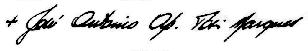 + José Antônio Ap. Tosi Marques